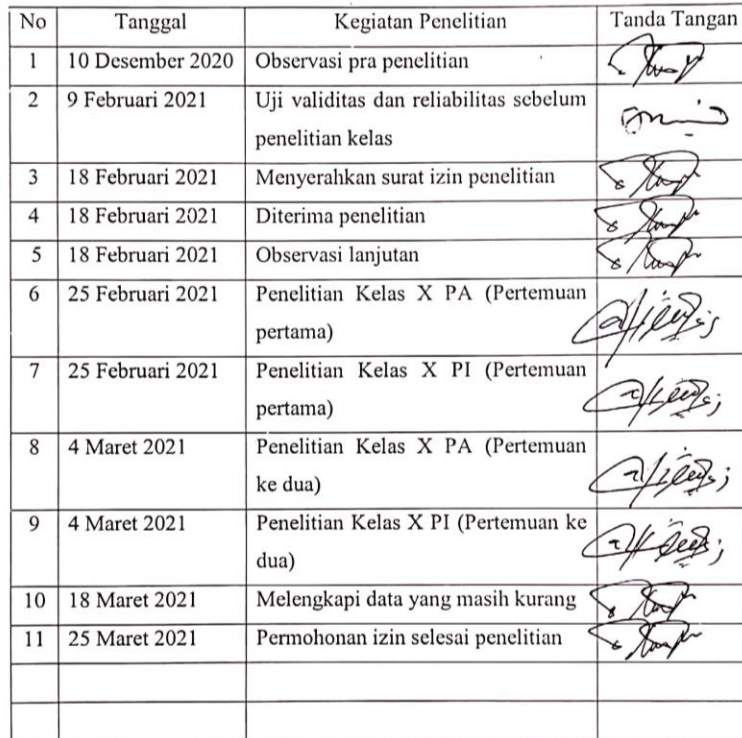 No Tanggal Kegiatan Penelitian Tanda Tangan
1 10 Desember 2020 Observasi pra penelitian
2 9 Februari 2021 Uji validitas dan reliabilitas sebelum
penelitian kelas
3 18 Februari 2021 Menyerahkan surat izin penelitian
4 18 Februari 2021 Diterima penelitian
5 18 Februari 2021 Observasi lanjutan
6 25 Februari 2021 Penelitian Kelas X PA (Pertemuan
pertama)
7 25 Februari 2021 Penelitian Kelas X PI (Pertemuan
pertama)
8 4 Maret 2021 Penelitian Kelas X PA (Pertemuan
ke dua)
9 4 Maret 2021 Penelitian Kelas X PI (Pertemuan ke
dua)
10 18 Maret 2021 Melengkapi data yang masih kurang
11 25 Maret 2021 Permohonan izin selesai penelitian